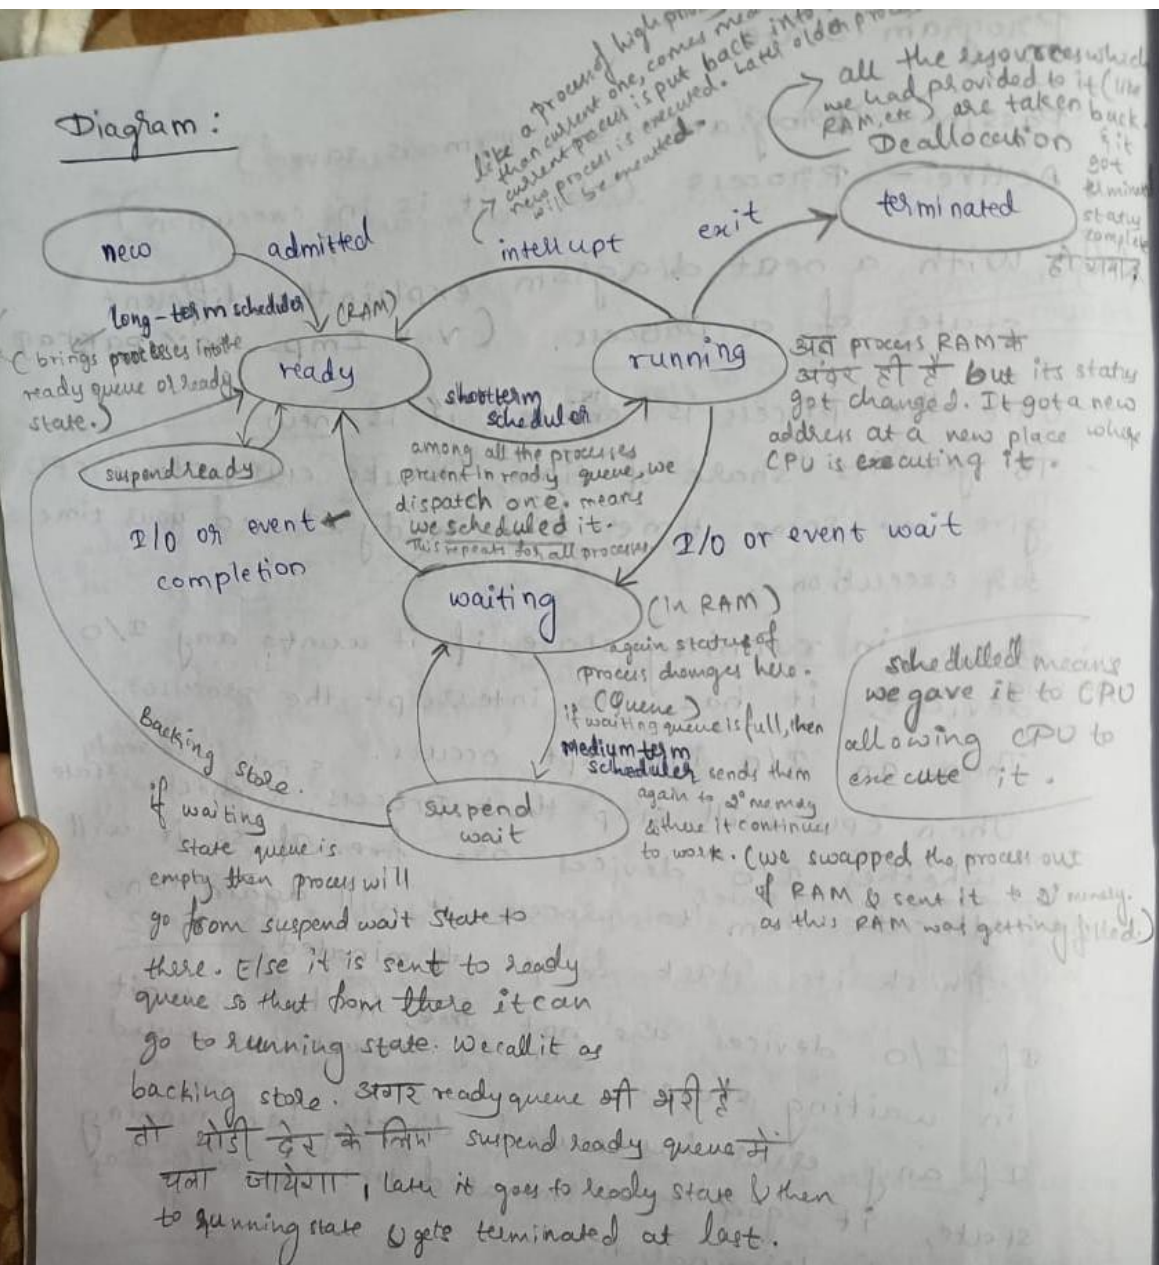 Diagram :
like a process of high
than current one, comes
current process is put back into
new process is executed. Later older
will be executed.
all the resources which
we had provided to it (like
RAM, etc) are taken back.
Deallocation
& it
got
status
हो गया
terminated
exit
interrupt
new
admitted
long-term scheduler
(RAM)
(brings processes into the
ready queue or ready
state.)
ready
running
अब process RAM के
अंदर ही है but its status
got changed. It got a new
address at a new place where
CPU is executing it.
shortterm
scheduler
suspend ready
among all the processes
present in ready queue, we
dispatch one. means
we scheduled it.
This repeats for all processes
I/O or event
completion
I/O or event wait
waiting
(in RAM)
again status of
process changes here.
(Queue)
if waiting queue is full, then
Medium term
scheduler sends them
again to 2° memory
& there it continues
to work. (we swapped the process out
of RAM & sent it to 2° memory.
as this RAM was getting filled.)
schedulled means
we gave it to CPU
allowing CPU to
execute it.
suspend
wait
Backing store.
if waiting
state queue is
empty then process will
go from suspend wait state to
there. Else it is sent to ready
queue so that from there it can
go to running state. We call it as
backing store. अगर ready queue भी भरी है
तो थोडी देर के लिए suspend ready queue में
चला जायेगा, Later it goes to ready state & then
to running state & gets terminated at last.